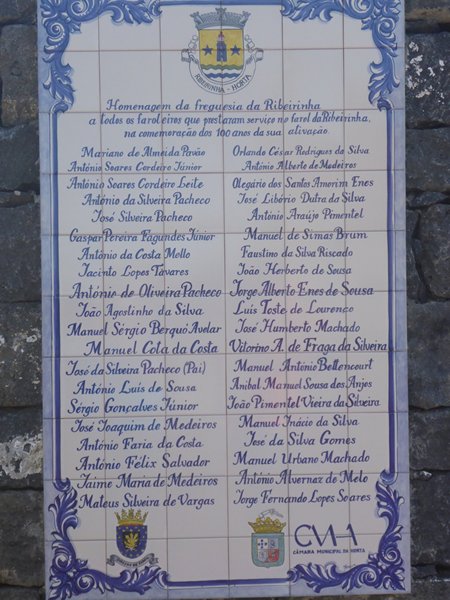 RIBEIRINHA - HORTA
Homenagem da freguesia da Ribeirinha
a todos os faroleiros que prestaram serviço no farol da Ribeirinha,
na comemoração dos 100 anos da sua ativação.
Mariano de Almeida Pavão
António Soares Cordeiro Júnior
António Soares Cordeiro Leite
António da Silveira Pacheco
José Silveira Pacheco
Gaspar Pereira Fagundes Júnior
António da Costa Mello
Jacinto Lopes Távares
António de Oliveira Pacheco
João Agostinho da Silva
Manuel Sérgio Berquó Avelar
Manuel Cota da Costa
José da Silveira Pacheco (Pai)
António Luis de Sousa
Sérgio Gonçalves Júnior
José Joaquim de Medeiros
António Faria da Costa
António Félix Salvador
Jaime Maria de Medeiros
Mateus Silveira de Vargas
Orlando César Rodrigues da Silva
António Alberto de Medeiros
Olegário dos Santos Amorim Enes
José Libório Dutra da Silva
António Araújo Pimentel
Manuel de Simas Brum
Faustino da Silva Riscado
João Herberto de Sousa
Jorge Alberto Enes de Sousa
Luis Toste de Lourenço
José Humberto Machado
Vitorino A. de Fraga da Silveira
Manuel António Bettencourt
Anibal Manuel Sousa dos Anjos
João Pimentel Vieira da Silveira
Manuel Inácio da Silva
José da Silva Gomes
Manuel Urbano Machado
António Alvernaz de Melo
Jorge Fernando Lopes Soares
CMH
CÂMARA MUNICIPAL DA HORTA